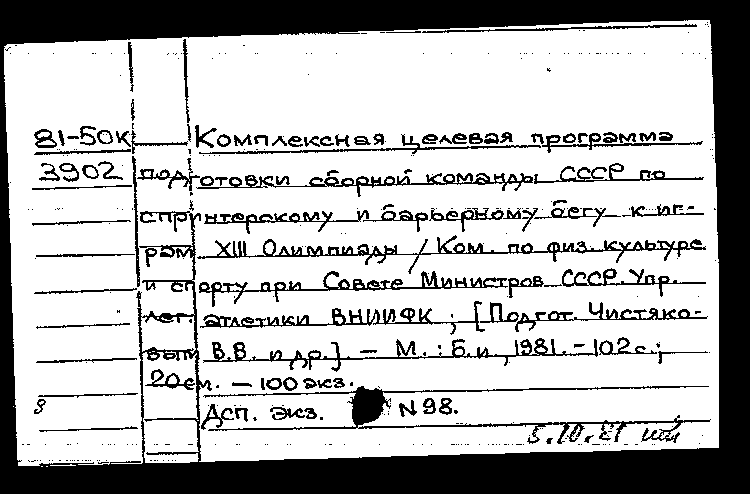 81-50к Комплексная целевая программа
3902 подготовки сборной команды СССР по
спринтерскому и барьерному бегу к иг-
рам XIII Олимпиады / Ком. по физ. культуре
и спорту при Совете Министров СССР. Упр.
лег. атлетики ВНИИФК ; [Подгот. Чистяко-
вым В.В. и др.] – М. : Б.и., 1981. – 102 с.;
20 см. – 100 экз.
8 Дсп. экз. N 98.
5.10.81